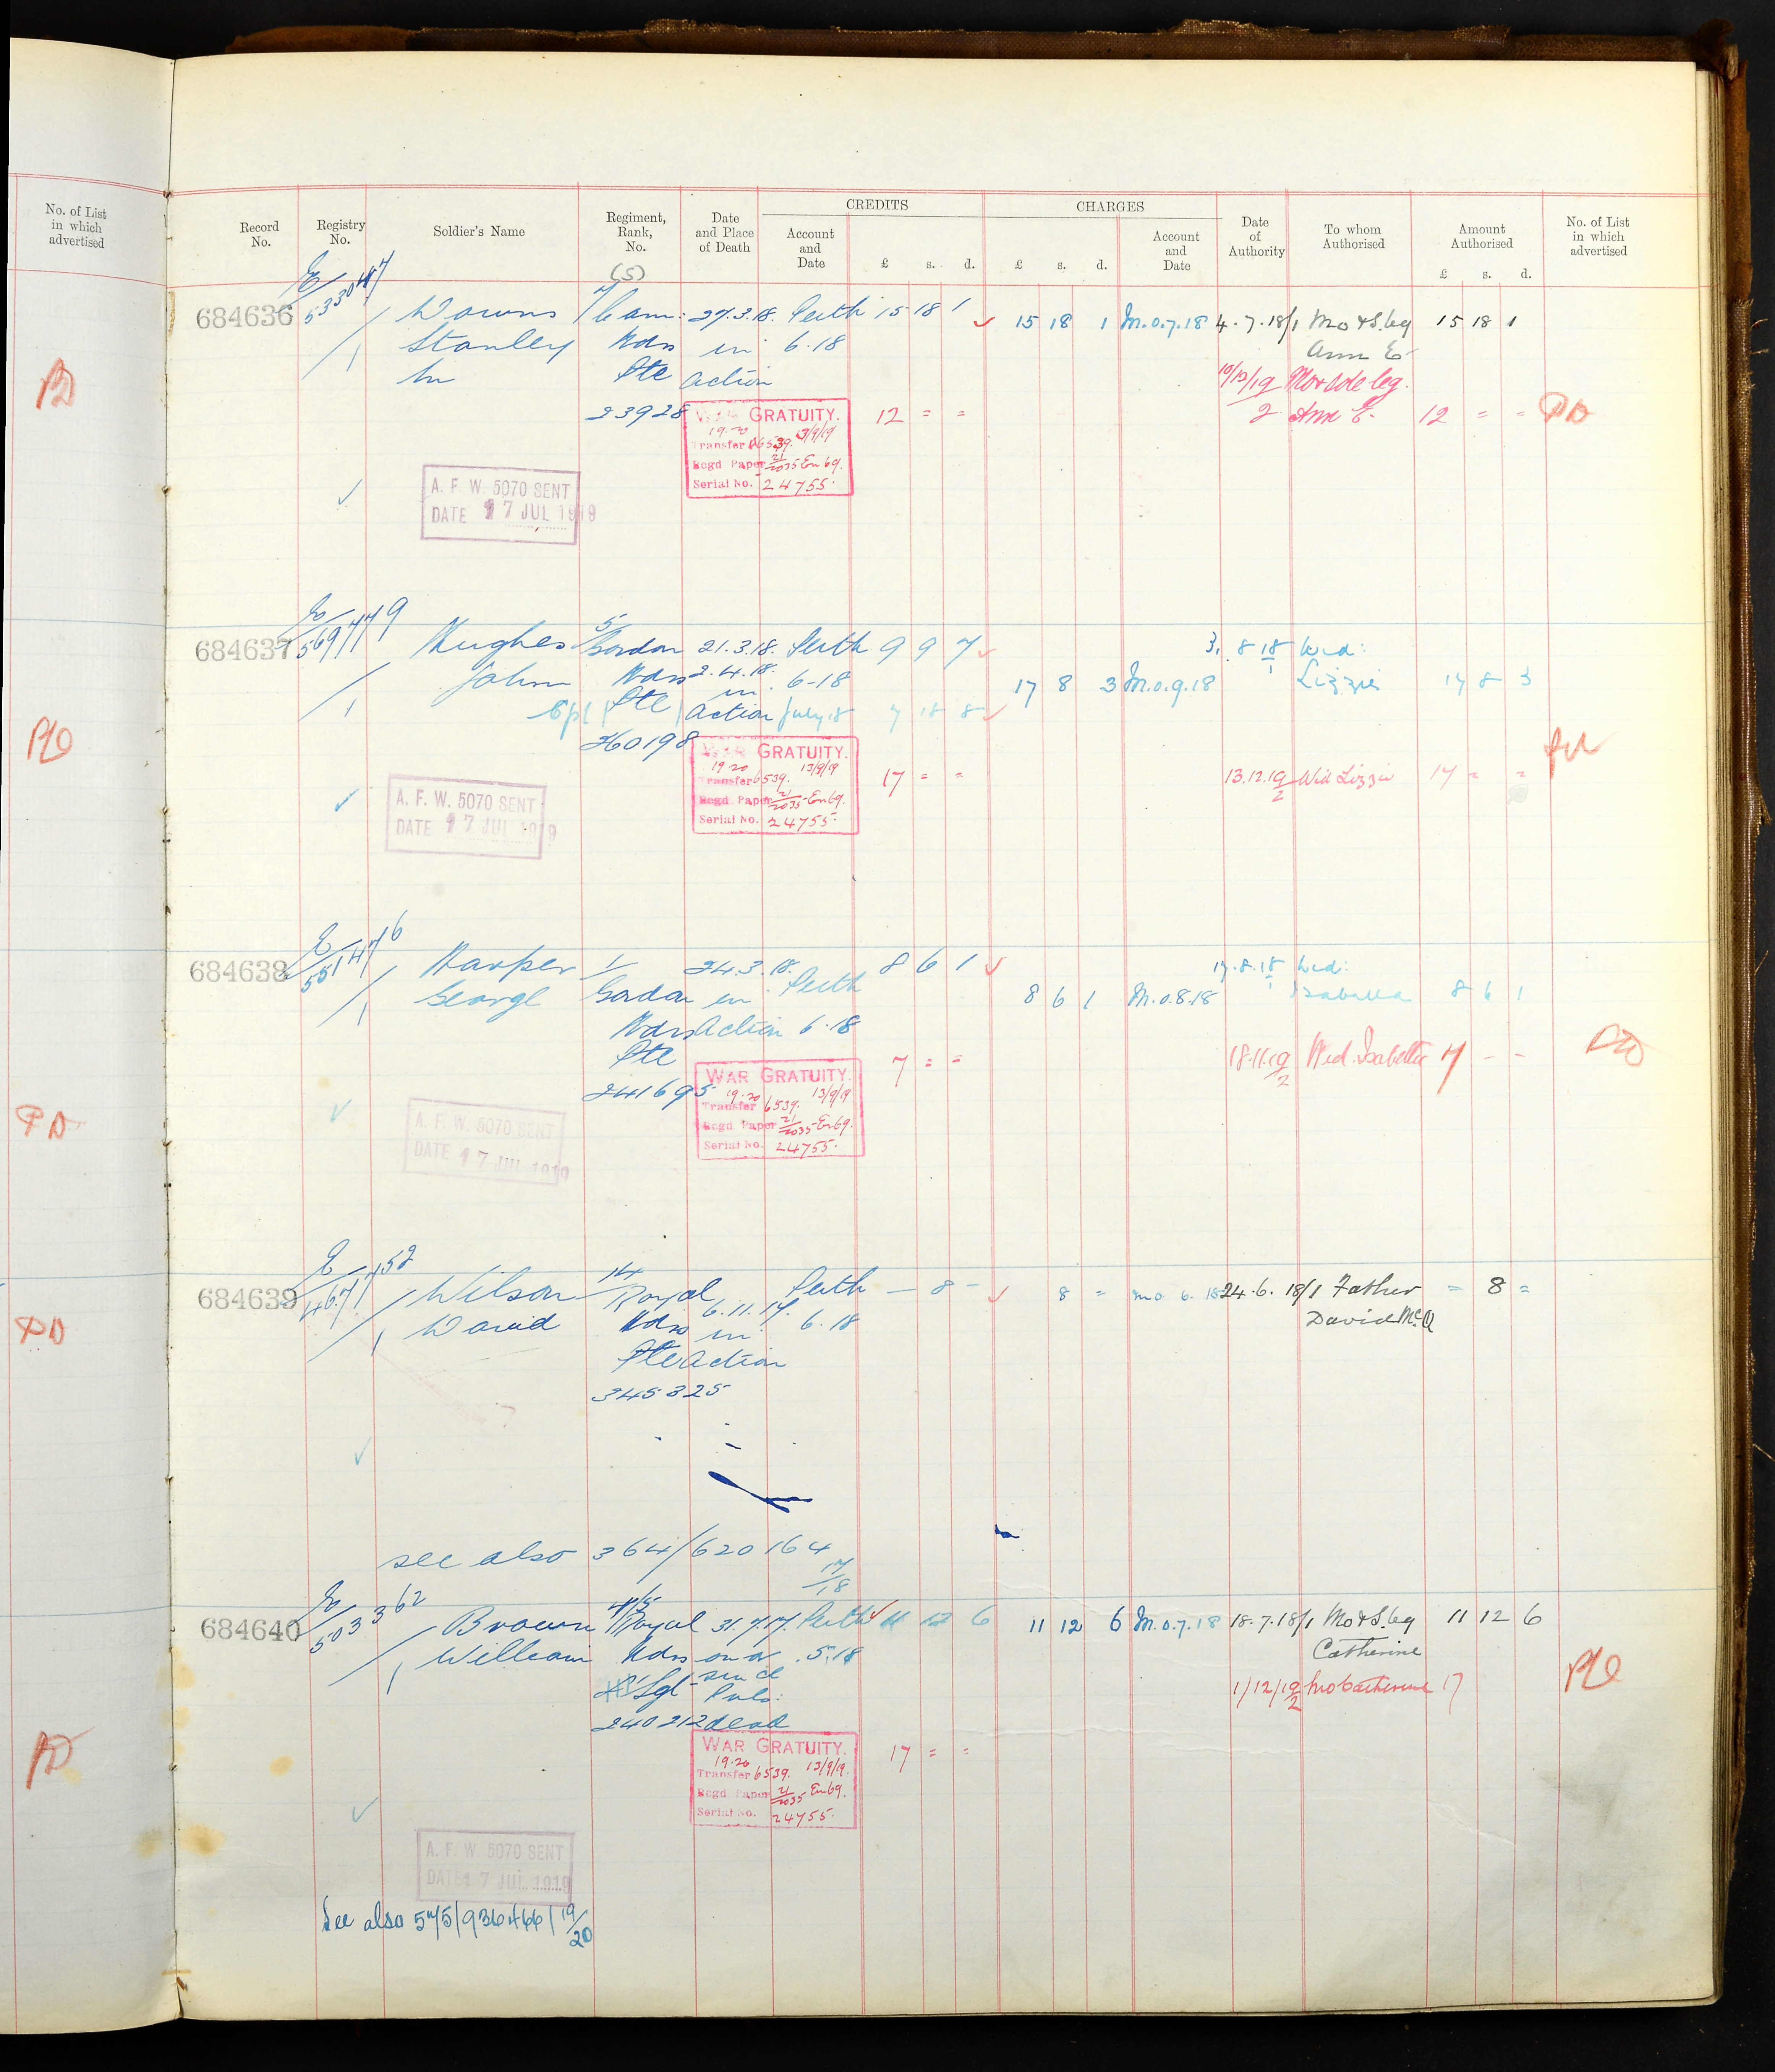 No. of List
in which
advertised
Record
No.
Registry
No.
Soldier's Name
Regiment,
Rank,
No.
(S)
Date
and Place
of Death
CREDITS
Account
and
Date
£ s. d.
CHARGES
£ s. d.
Account
and
Date
Date
of
Authority
To whom
Authorised
Amount
Authorised
£ s. d.
No. of List
in which
advertised
684636 E/533047/1 Downs 7/Cam: 27.3.18. Perth 15 18 1 15 18 1 M.O.7.18 4.7.18/1 Mo & S. leg 15 18 1
Stanley Hdrs in 6.18 Ann E
Pte action 10/10/19 Mo & sole leg.
23928 12 = = 2 Ann E. 12 = =
WAR GRATUITY.
19.20 13/9/19
Transfer 6539.
Regd Paper 21/2035 En 69.
Serial No. 24755.
A. F. W. 5070 SENT
DATE 17 JUL 1919
684637 E/569779/1 Hughes 5/Gordon 21.3.18. Perth 9 9 7 3.8.18/1 Wid:
John Hdrs 2.4.18. 6-18 17 8 3 M.O.9.18 Lizzie 17 8 3
Cpl (Pte) in action July 18 7 18 8
260198
WAR GRATUITY.
19.20 13/9/19
Transfer 6539. 17 = = 13.12.19/2 Wid Lizzie 17 = =
Regd Paper 21/2035 En 69.
Serial No. 24755.
A. F. W. 5070 SENT
DATE 17 JUL 1919
684638 E/551476/1 Harper 1/ 24.3.18. 8 6 1 17.8.18/1 Wid:
George Gordon in Perth 8 6 1 M.O.8.18 Isabella 8 6 1
Hdrs Action 6.18
Pte 7 = = 18.11.19/2 Wid. Isabella 7 - -
241695
WAR GRATUITY.
19.20 13/9/19
Transfer 6539.
Regd Paper 21/2035 En 69.
Serial No. 24755.
A. F. W. 5070 SENT
DATE 17 JUL 1919
684639 Wilson 14/Royal Perth - 8 - 8 = MO 6.18 24.6.18/1 Father = 8 =
David Hdrs 6.11.17. in 6.18 David McQ
Pte Action
345325
see also 364/620164 17/18
684640 E/503362/1 Brown 4/5 Royal 31.7.17. Perth 11 12 6 11 12 6 M.O.7.18 18.7.18/1 Mo & S. leg 11 12 6
William Hdrs on or 5.18 Catherine
Sgt since 1/12/19/2 Mo Catherine 17
240212 dead
WAR GRATUITY. 17 = =
19.20 13/9/19.
Transfer 6539.
Regd Paper 21/2035 En 69.
Serial No. 24755.
A. F. W. 5070 SENT
DATE 17 JUL 1919
See also 575/936466/19/20